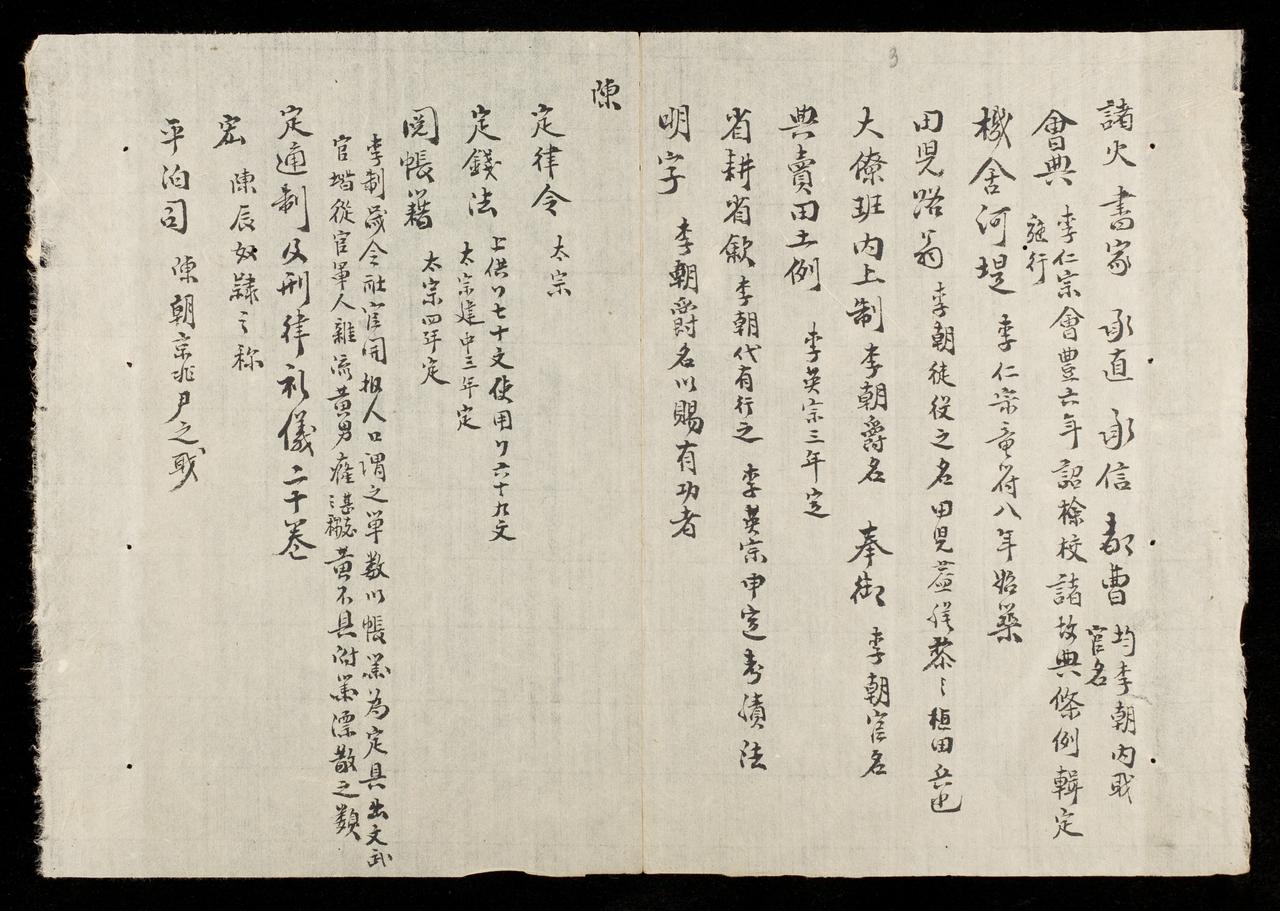 3
諸火 書家 承直 承信 都曹 均李朝内戝
官名
會典 李仁宗會豐六年詔検校諸故典條例輯定
頒行
機舍河堤 李仁宗童符八年始築
田児路翁 李朝徒役之名田児
大僚班内上制 李朝爵名 奉御 李朝官名
典賣田土例 李英宗三年定
省耕省歛 李朝代有行之 李英宗申定考績法
明字 李朝爵名以賜有功者
陳
定律令 太宗
定錢法 上供以七十文使用以六十九文
太宗建中三年定
閲帳籍 太宗四年定
李制歲令社官開報人口謂之単数以帳籍為定具出文武
官堦從官軍人雜流黄男癃老不具附籍漂散之類
定通制及刑律礼儀二十卷
宏 陳辰奴隸之称
平泊司 陳朝京兆尹之戝